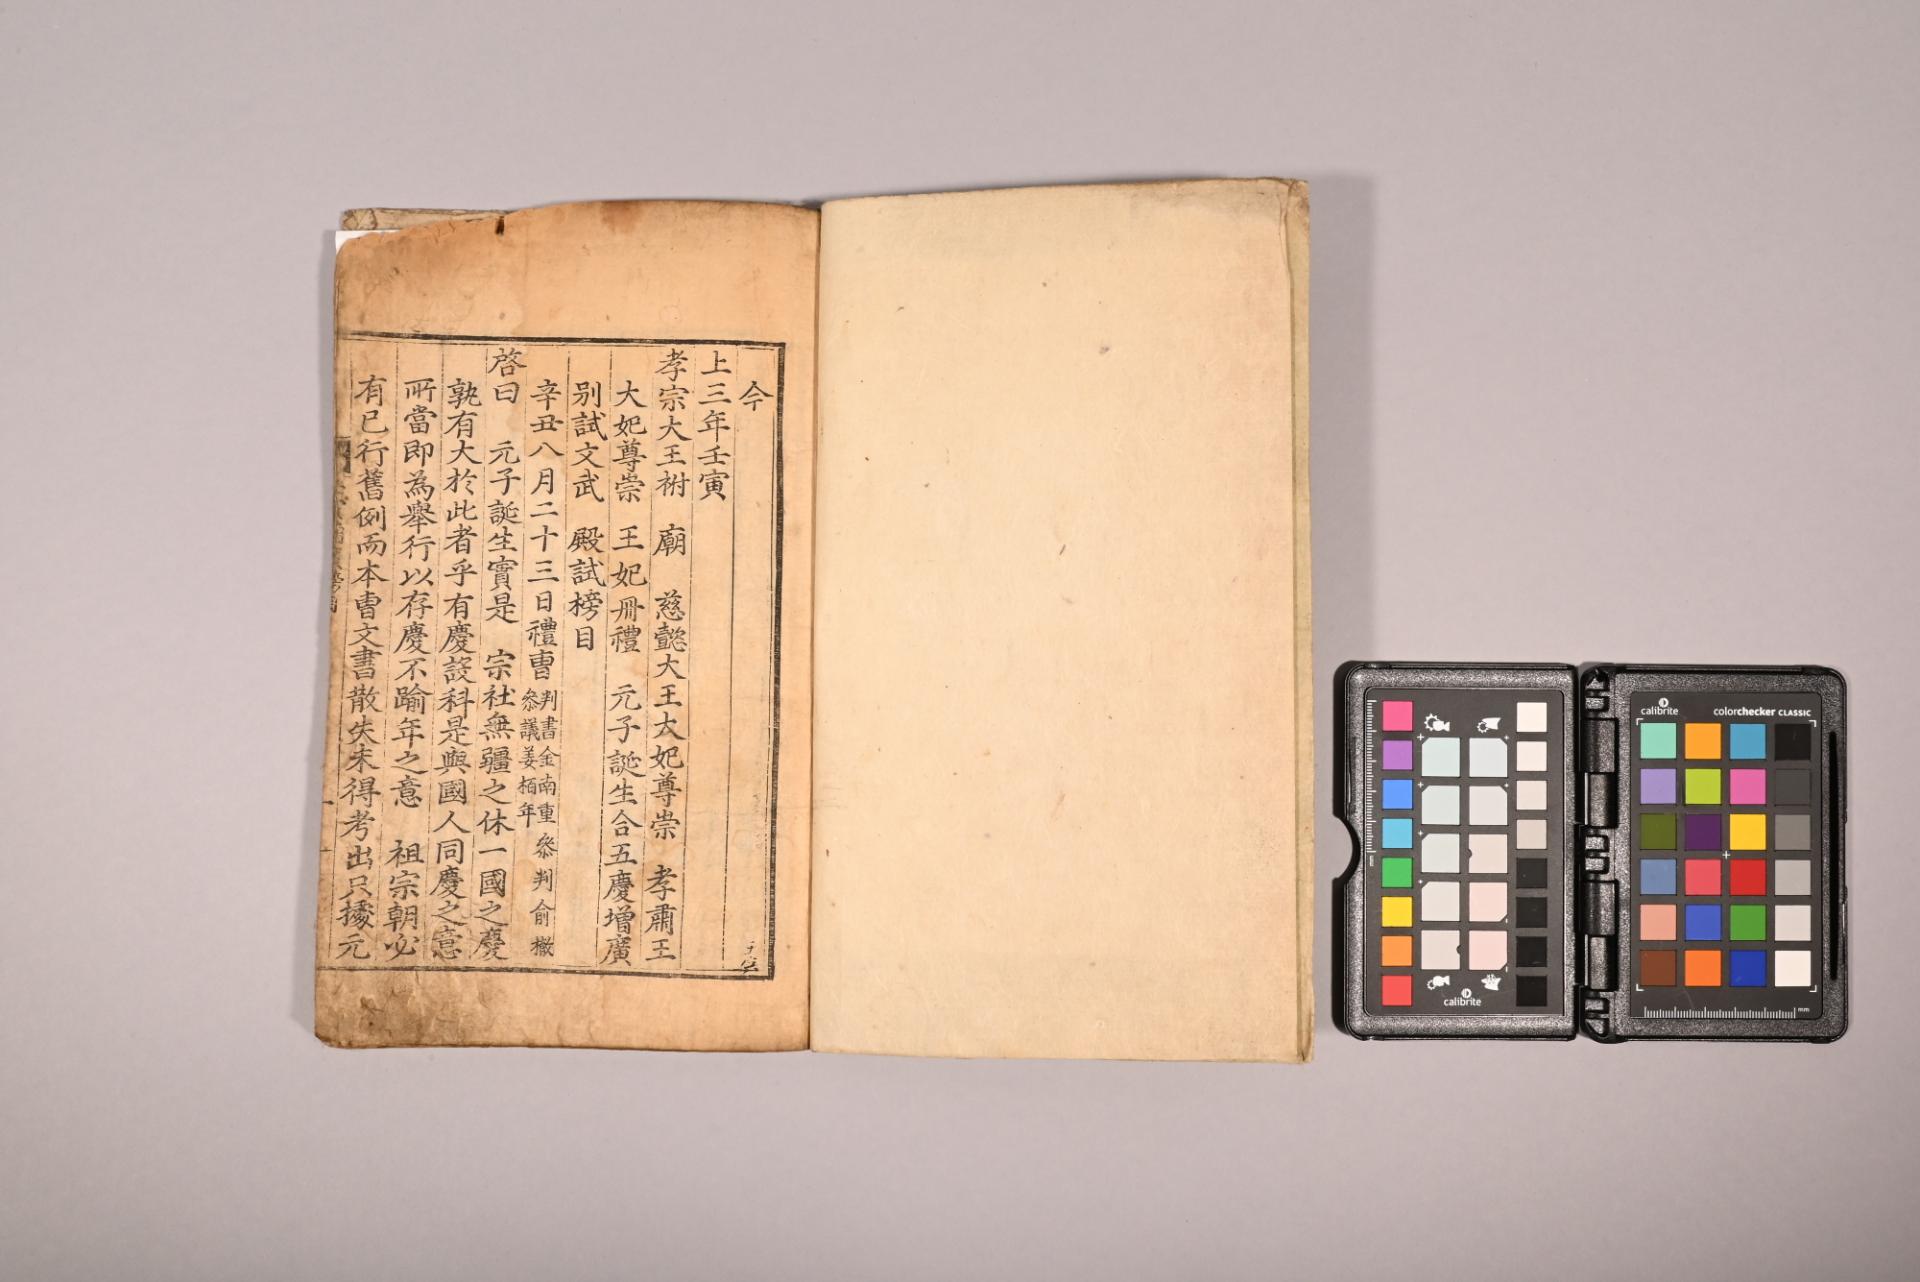 今
上三年壬寅
孝宗大王祔　廟　慈懿大王大妃尊崇　孝肅王
大妃尊崇　王妃冊禮　元子誕生合五慶增廣
別試文武　殿試榜目
辛丑八月二十三日禮曹判書金南重參議姜栢年參判俞㯙
啓曰　元子誕生實是　宗社無疆之休一國之慶
孰有大於此者乎有慶設科是與國人同慶之意
所當即為舉行以存慶不踰年之意　祖宗朝必
有已行舊例而本曹文書散失未得考出只據元
calibrite
calibrite
colorchecker CLASSIC
mm